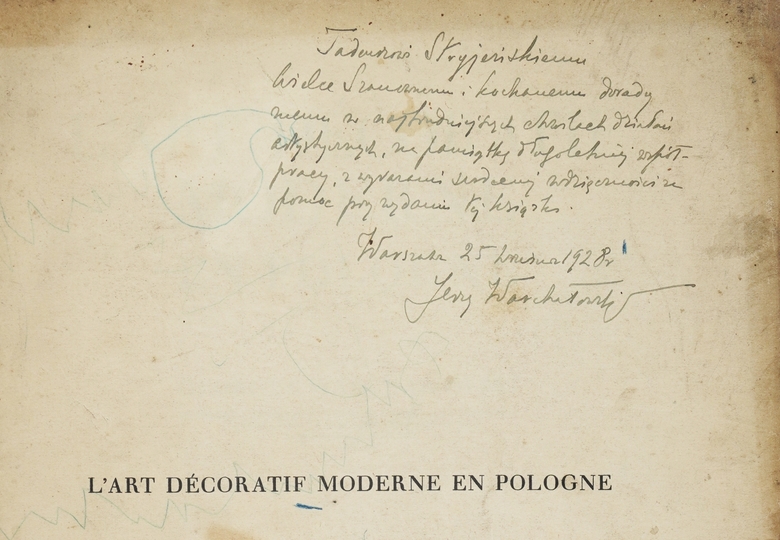 Tadeuszowi Stryjeńskiemu
wielce Szanownemu i kochanemu
w najtrudniejszych chwilach działań
artystycznych, na pamiątkę długoletniej współ-
pracy, z wyrazami serdecznej wdzięczności za
pomoc przy wydaniu tej książki.
Warszawa 25 września 1928 r
Jerzy Warchałowski
L'ART DÉCORATIF MODERNE EN POLOGNE